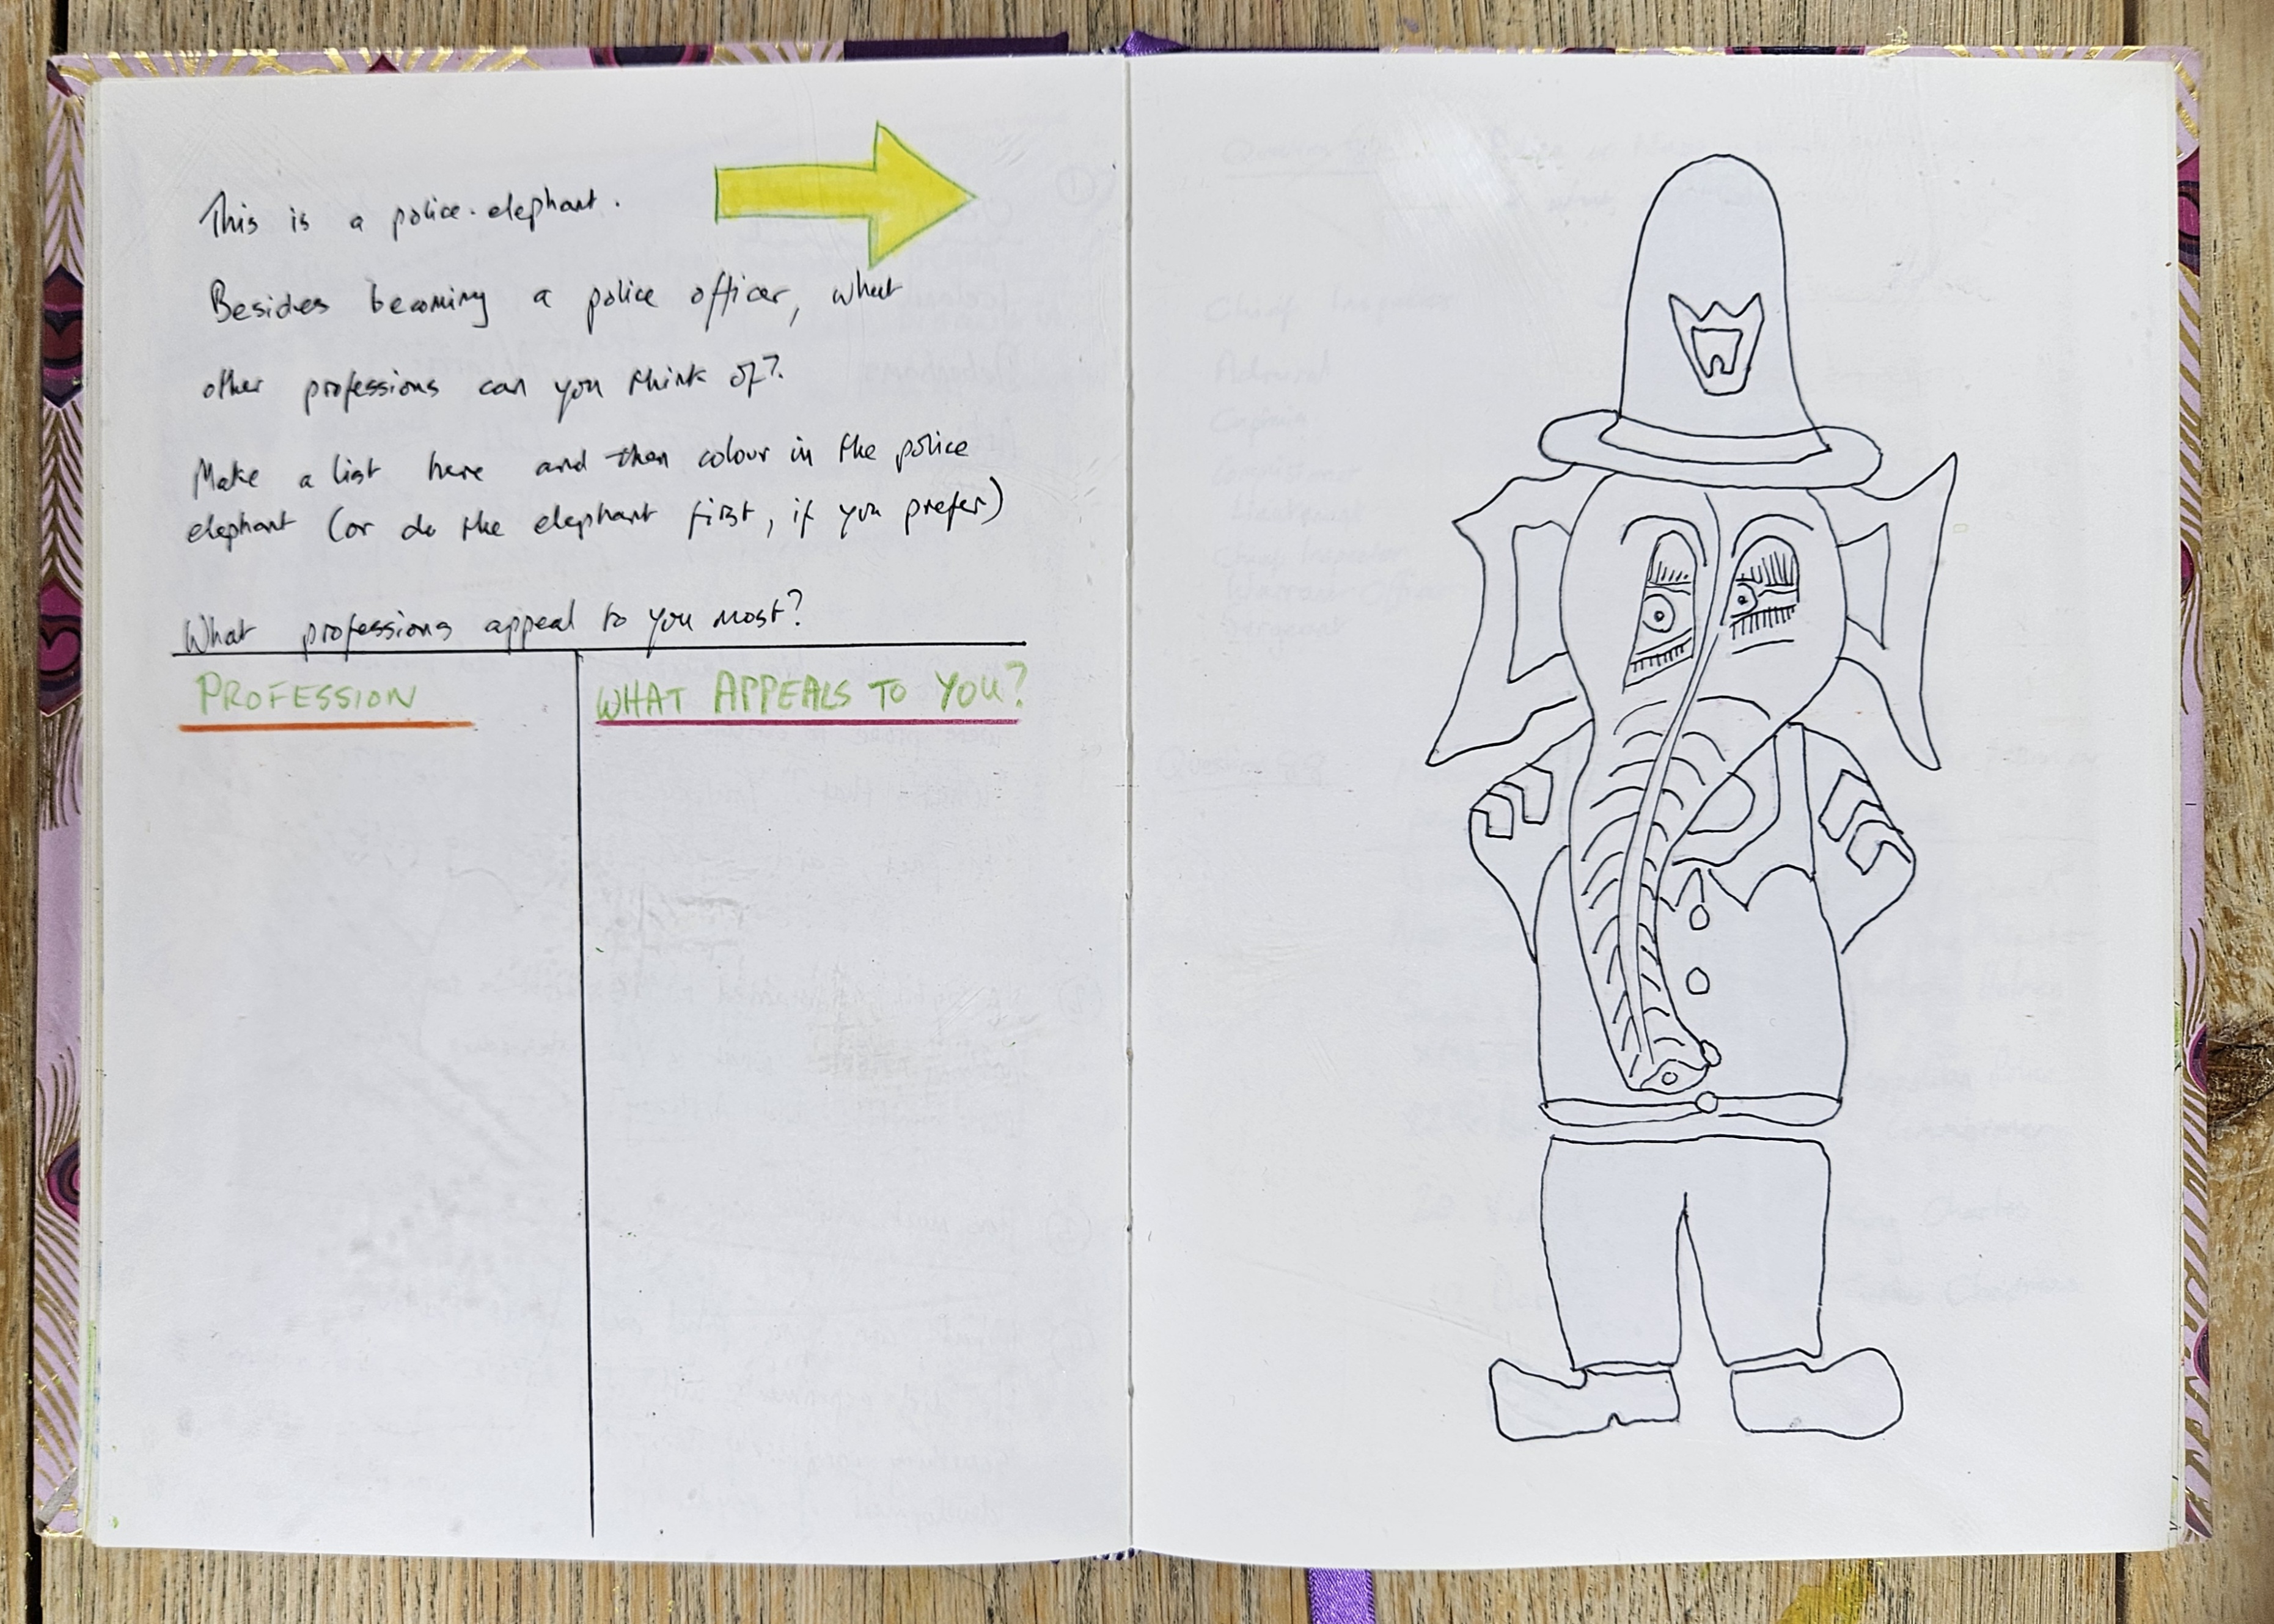 This is a police-elephant.
Besides becoming a police officer, what
other professions can you think of?
Make a list here and then colour in the police
elephant (or do the elephant first, if you prefer)
What professions appeal to you most?
PROFESSION
WHAT APPEALS TO YOU?